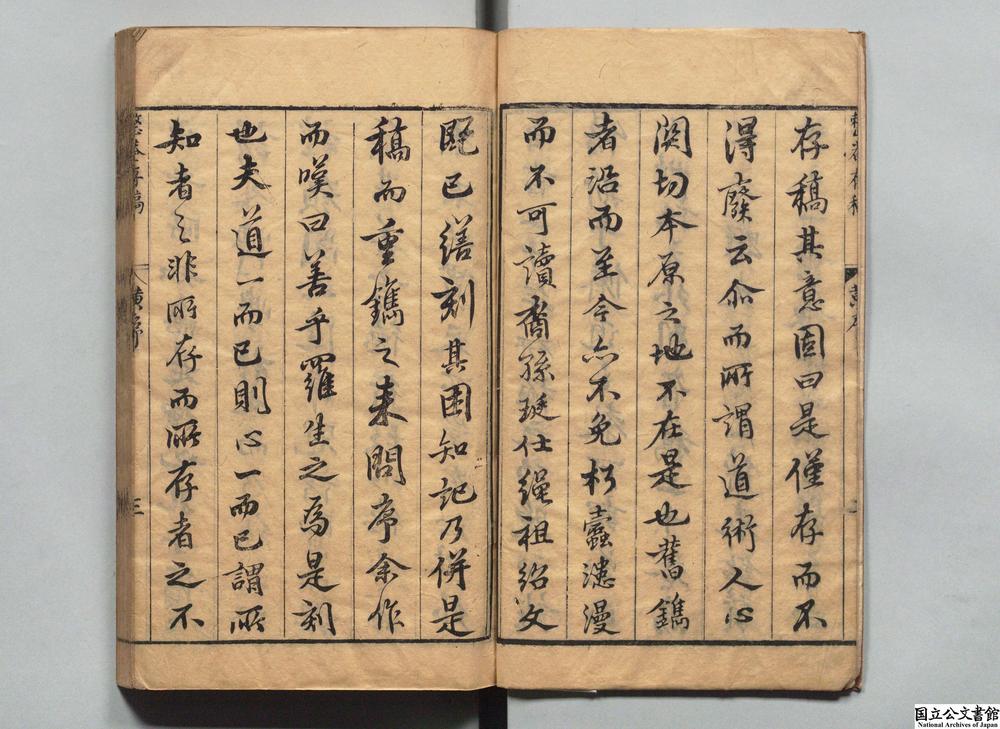 存稿其意固曰是僅存而不
得廢云尒而所謂道術人心
関切本原之地不在是也舊鐫
者沿而至今亦不免朽蠹漶漫
而不可讀裔孫珽仕繩祖紹文
既已繕刻其困知記乃併是
稿而重鐫之来問序余作
而嘆曰善乎羅生之為是刻
也夫道一而已則心一而已謂所
知者之非所存而所存者之不
整菴存稿
黄序
三
国立公文書館
National Archives of Japan